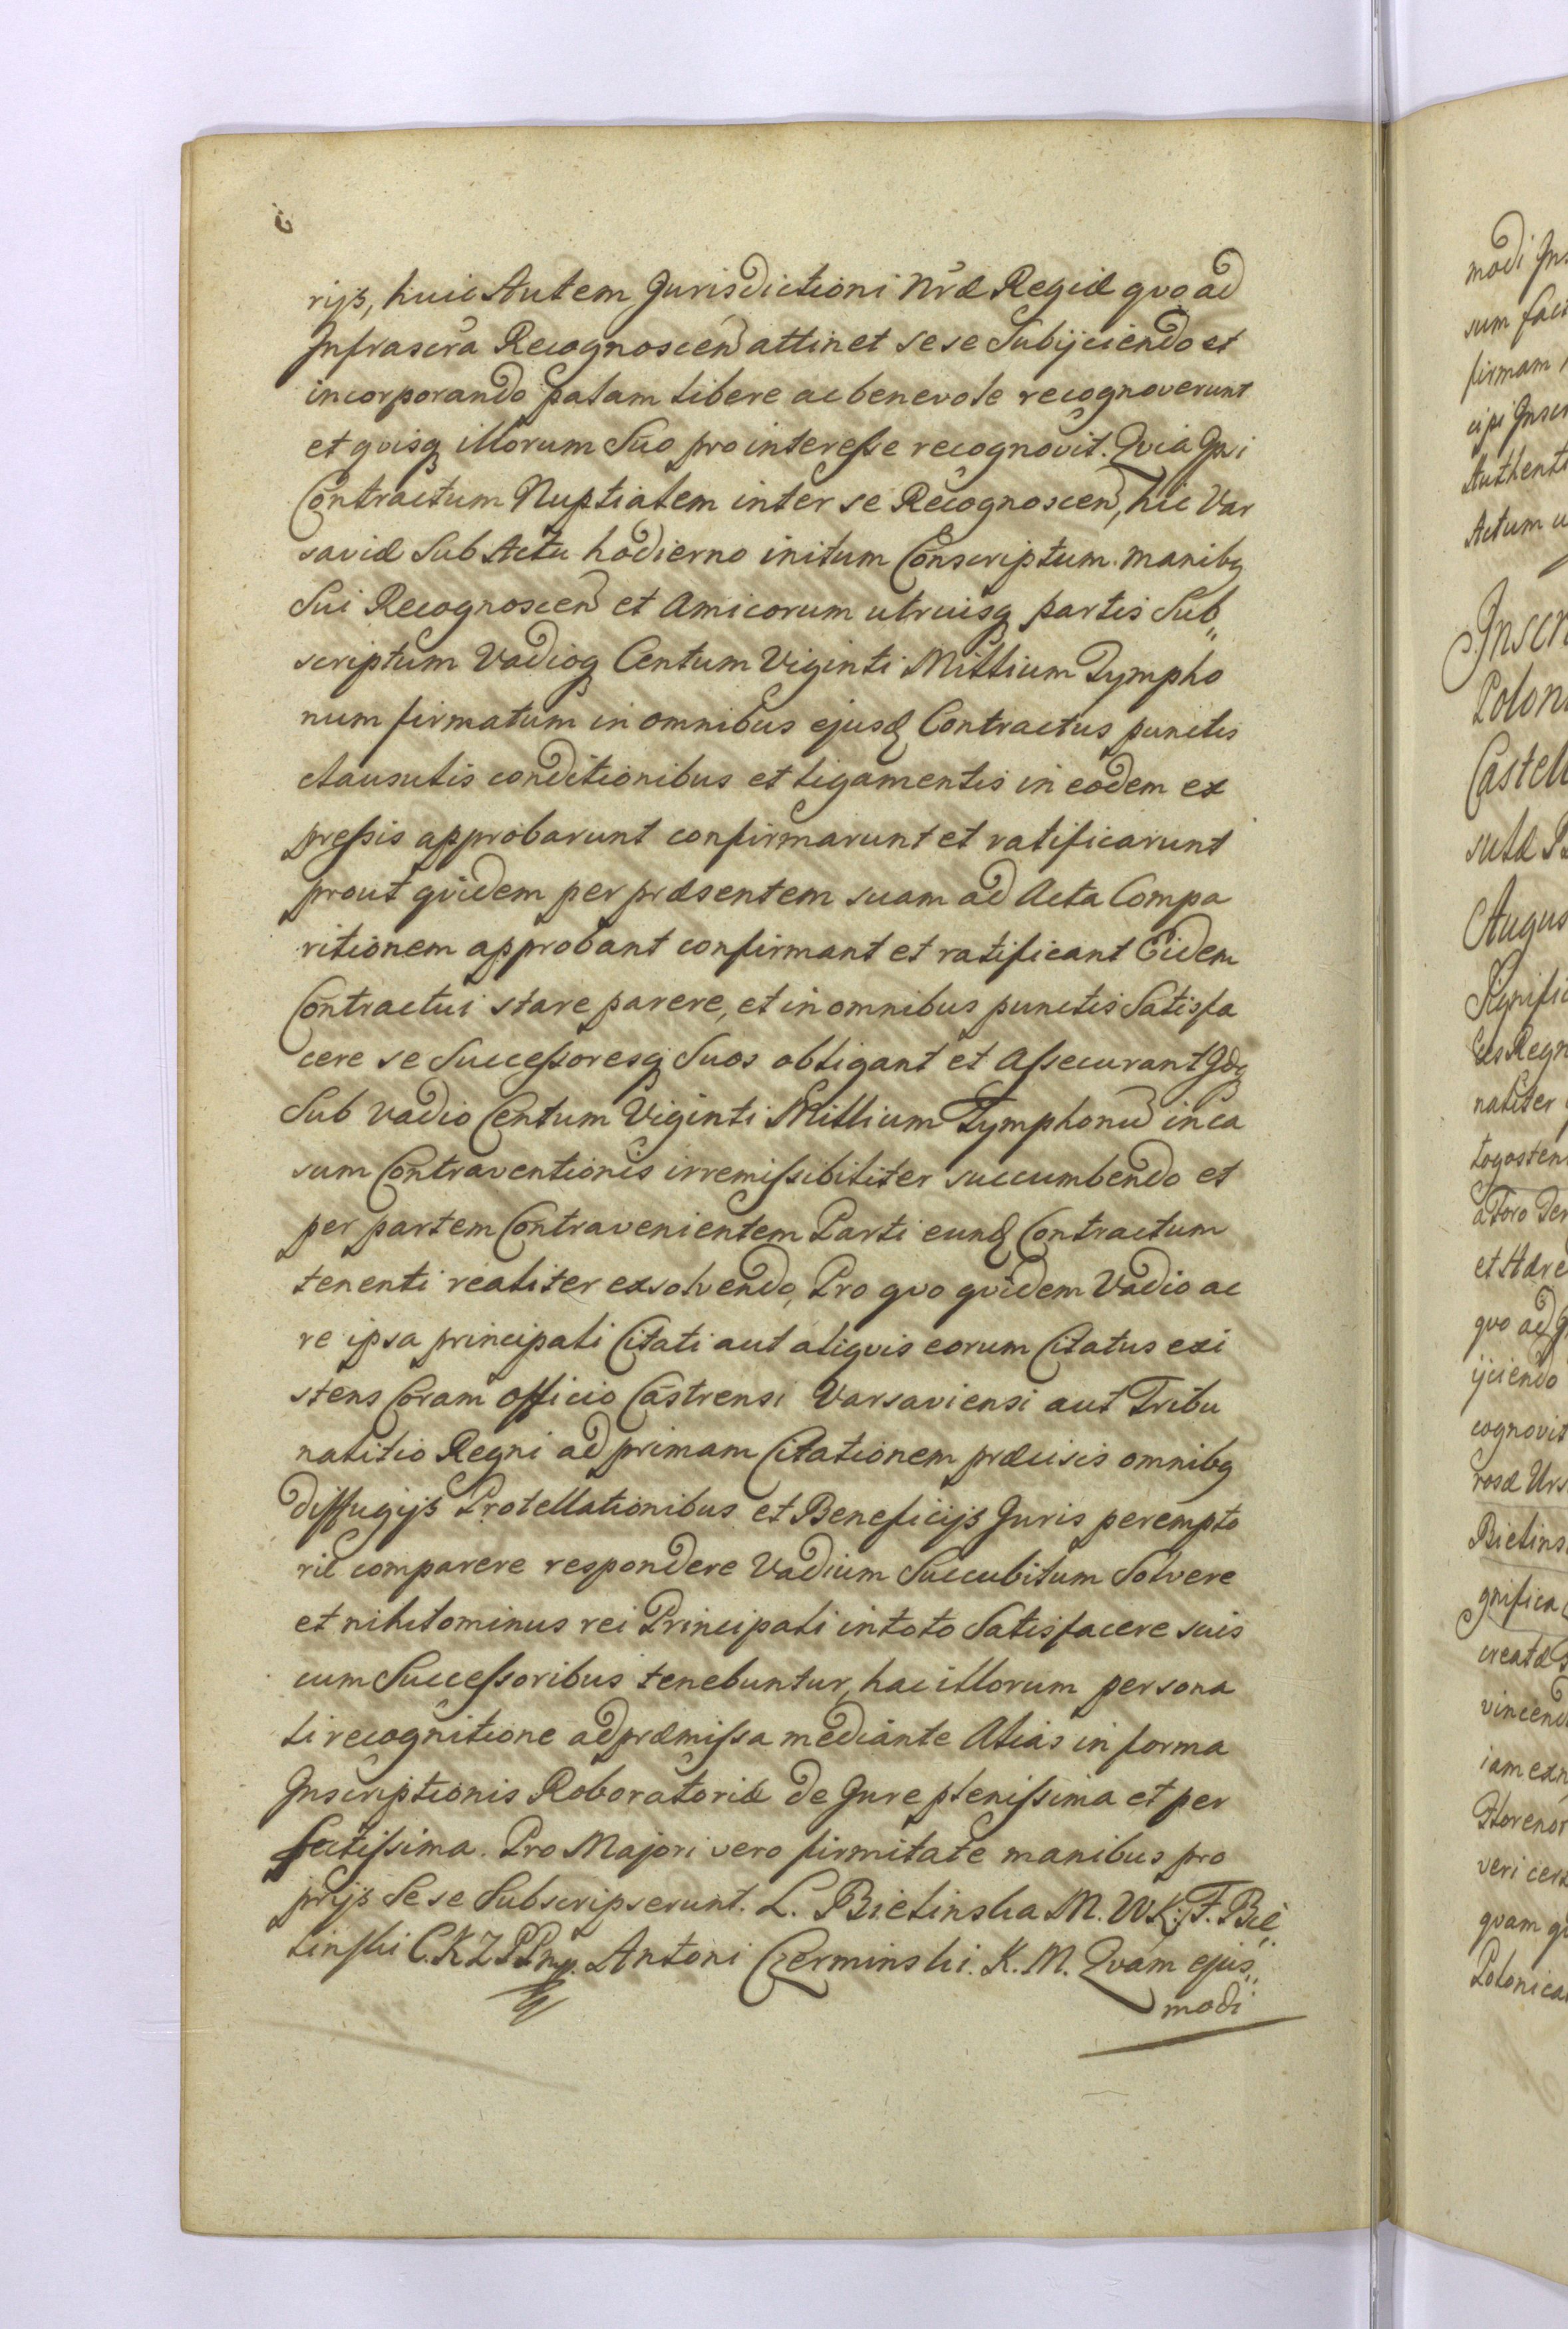 rijs, huic Autem Jurisdictioni Nræ Regiæ quo ad
Infrascra Recognoscen attinet sese Subijciendo et
incorporando palam libere ac benevole recognoverunt
et quisq illorum Suo pro interesse recognovit. Quia Ipsi
Contractum Nuptialem inter se Recognoscen, hic Var
saviæ Sub Actu hodierno initum Conscriptum manibq
Sui Recognoscen et Amicorum utriusq partis Sub„
scriptum Vadioq Centum Viginti Millium Tympho
num firmatum in omnibus ejusd Contractus punctis
clausulis conditionibus et ligamentis in eodem ex
pressis approbarunt confirmarunt et ratificarunt
prout quidem per præsentem suam ad Acta Compa
ritionem approbant confirmant et ratificant Eidem
Contractui stare parere, et in omnibus punctis Satisfa
cere se Successoresq Suos obligant et Assecurant Idq
Sub vadio Centum Viginti Millium Tymphonu in ca
sum Contraventionis irremissibiliter succumbendo et
per partem Contravenientem Parti eund Contractum
tenenti realiter exsolvendo, Pro quo quidem Vadio ac
re ipsa principali Citati aut aliquis eorum Citatus exi
stens Coram officio Castrensi Varsaviensi aut Tribu
nalitio Regni ad primam Citationem præcisis omnibq
diffugijs Protellationibus et Beneficijs Juris perempto
rie comparere respondere Vadium Succubitum Solvere
et nihilominus rei Principali in toto Satisfacere suis
cum Successoribus tenebuntur, hac illorum persona
li recognitione ad præmissa mediante Alias in forma
Inscriptionis Roboratoriæ de Jure plenissima et per
fectissima. Pro Majori vero firmitate manibus pro
prijs Sese Subscripserunt. L. Bielinska M. W. K. F. Bie„
linski C. K. Z. P. Antoni Czerminski. K. M. Quam ejus„
modi
modi
sum
firmam
Authenti
Actum
Castell
Augus
naliter
et Hære
quo ad
ijciendo
cognovit
Bielins
gnifica
creatæ
veri
quam